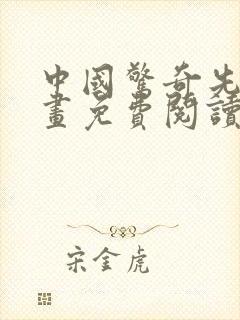 中國驚奇先
畫免費閱讀
宋金虎